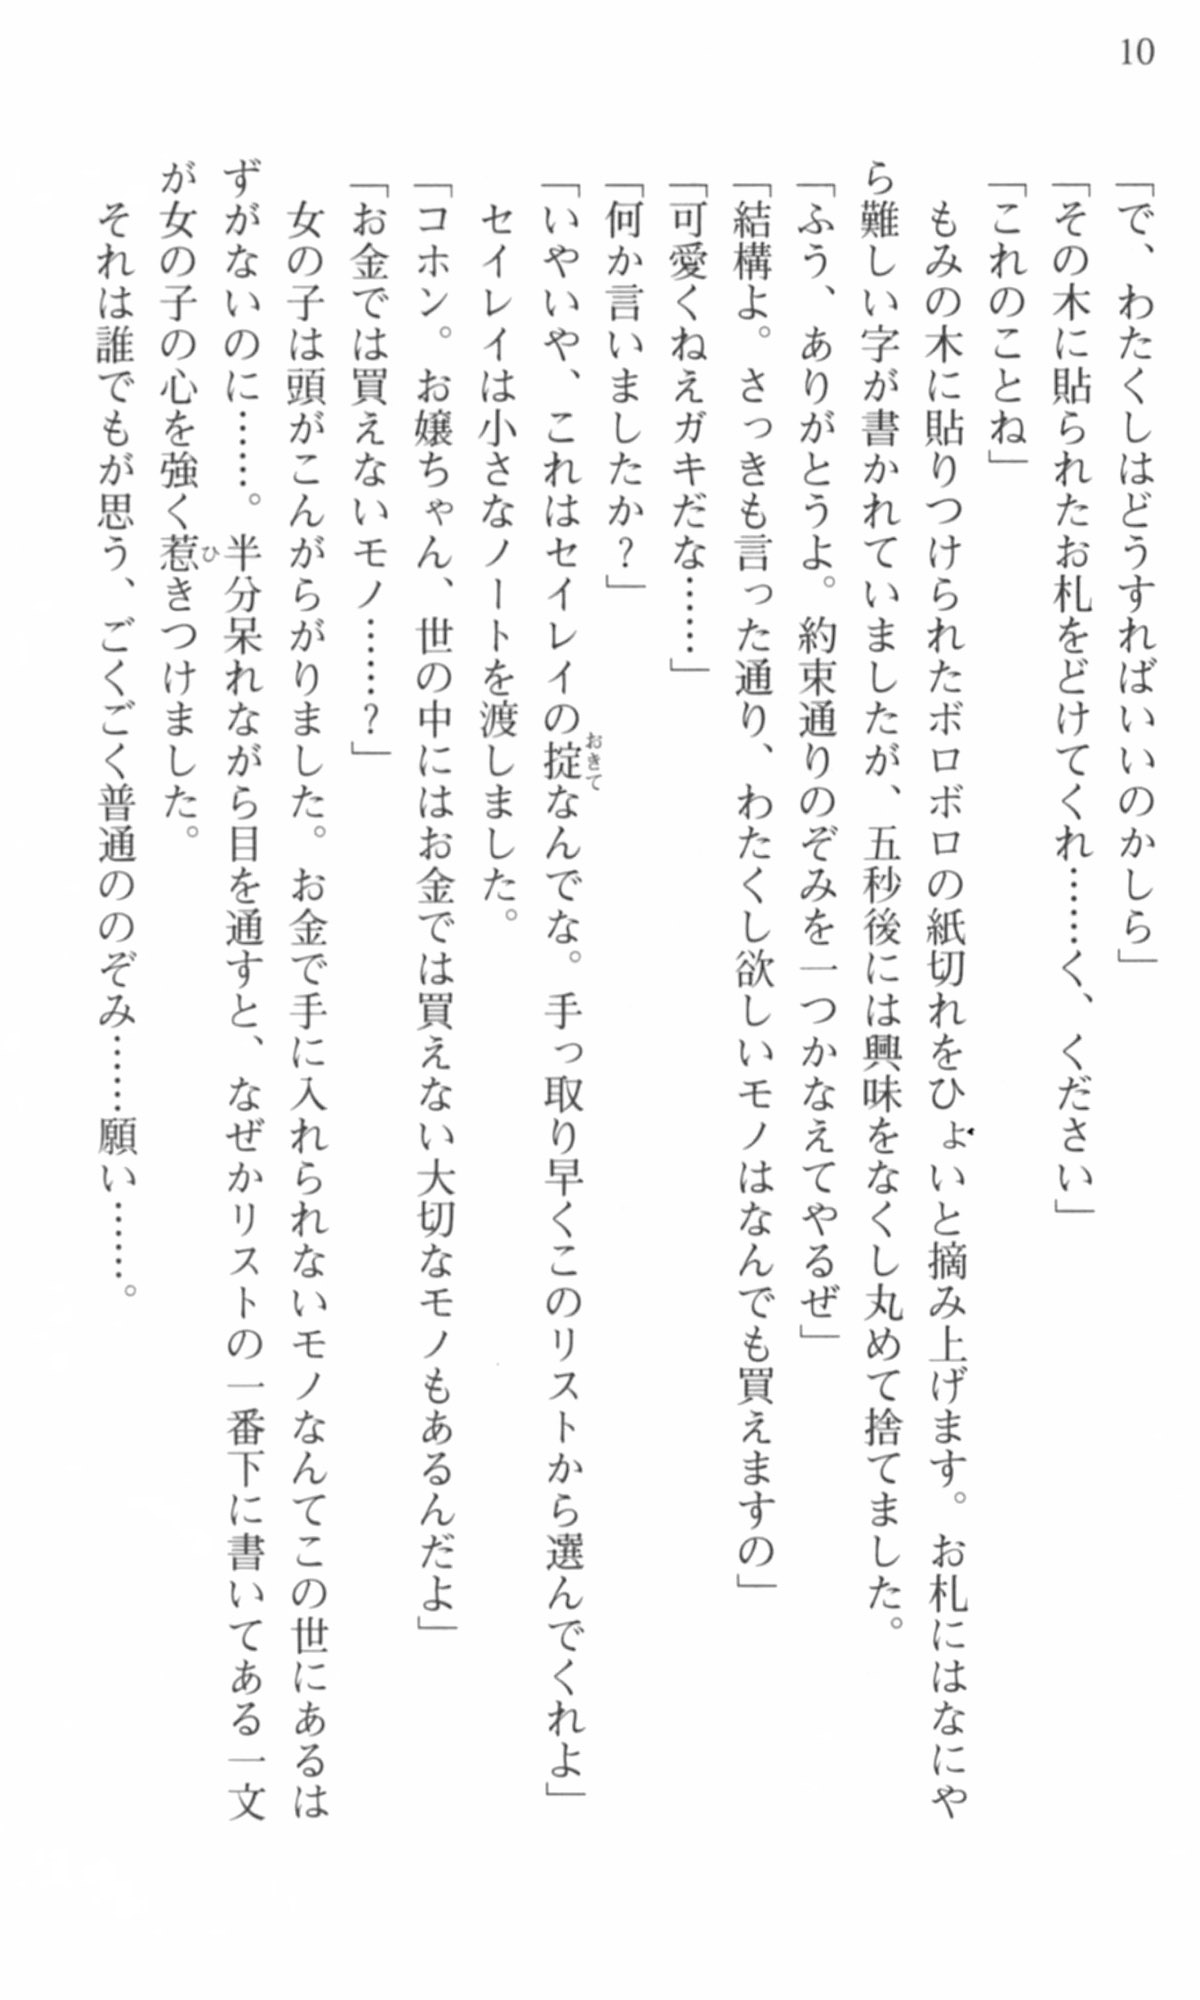 10
「で、わたくしはどうすればいいのかしら」
「その木に貼られたお札をどけてくれ……く、ください」
「これのことね」
　もみの木に貼りつけられたボロボロの紙切れをひょいと摘み上げます。お札にはなにや
ら難しい字が書かれていましたが、五秒後には興味をなくし丸めて捨てました。
「ふう、ありがとうよ。約束通りのぞみを一つかなえてやるぜ」
「結構よ。さっきも言った通り、わたくし欲しいモノはなんでも買えますの」
「可愛くねえガキだな……」
「何か言いましたか？」
「いやいや、これはセイレイの掟なんでな。手っ取り早くこのリストから選んでくれよ」
　セイレイは小さなノートを渡しました。
「コホン。お嬢ちゃん、世の中にはお金では買えない大切なモノもあるんだよ」
「お金では買えないモノ……？」
　女の子は頭がこんがらがりました。お金で手に入れられないモノなんてこの世にあるは
ずがないのに……。半分呆れながら目を通すと、なぜかリストの一番下に書いてある一文
が女の子の心を強く惹きつけました。
　それは誰でもが思う、ごくごく普通ののぞみ……願い……。